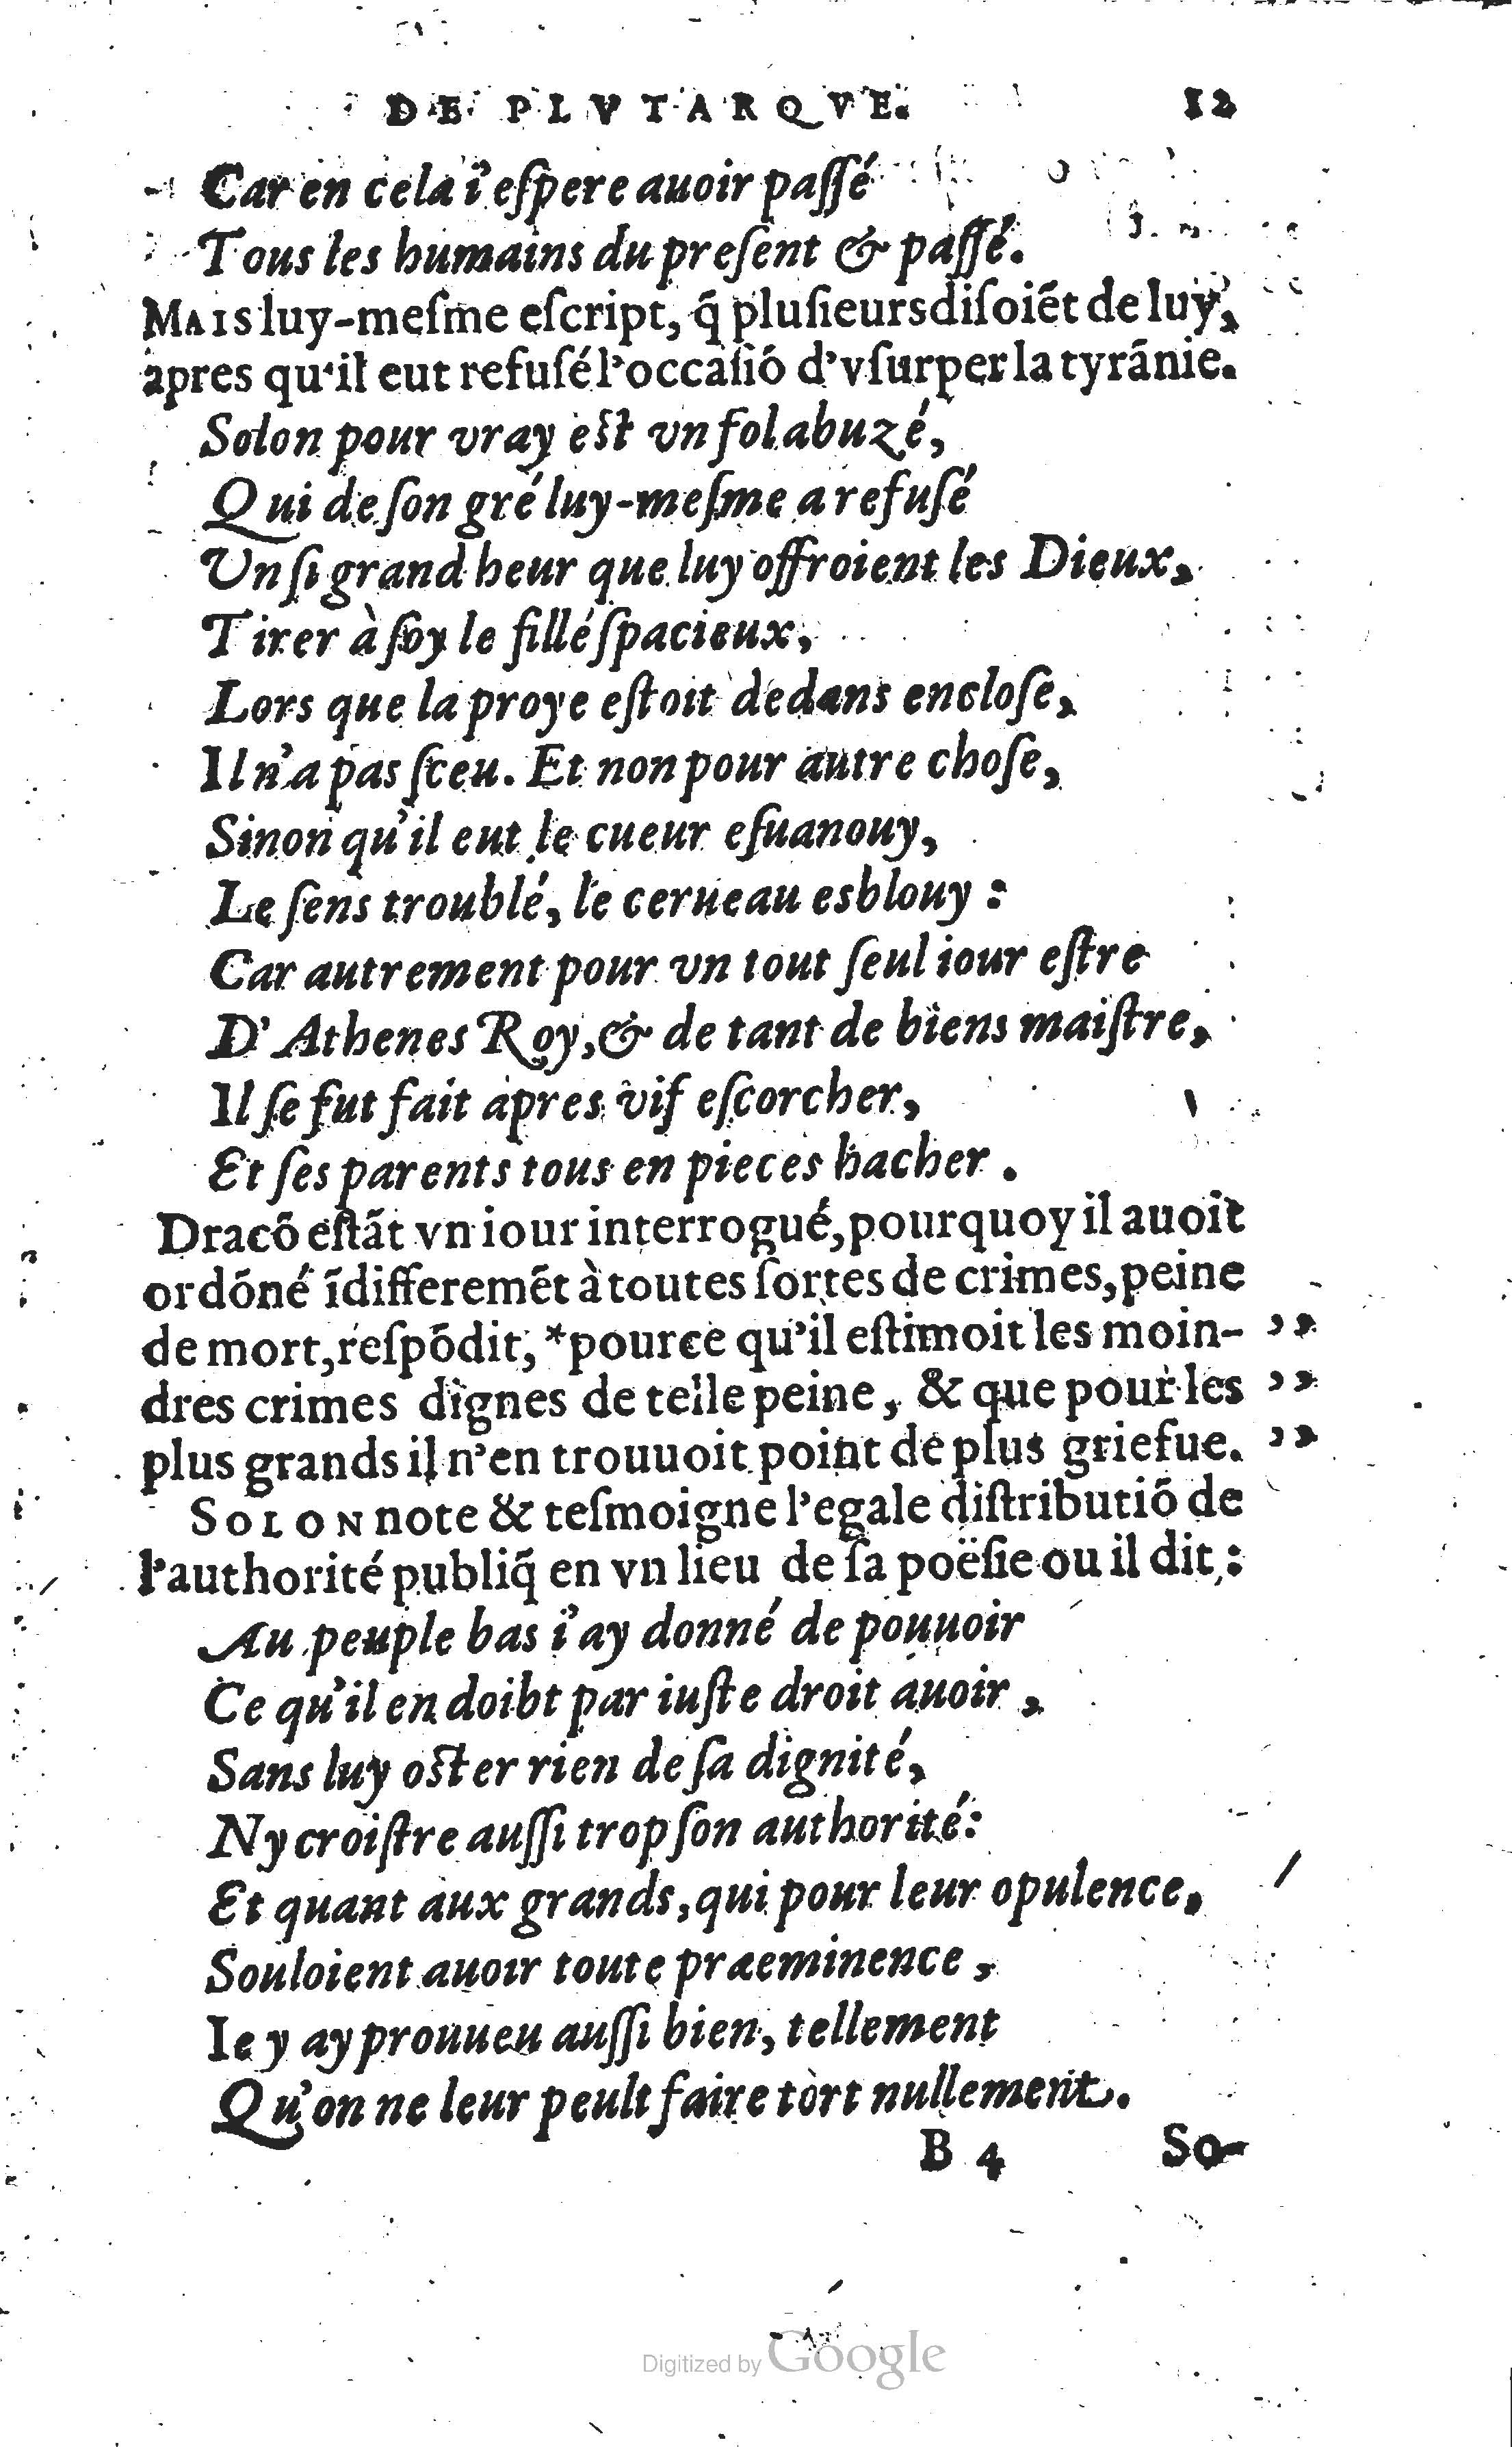 DE PLVTARQVE. 12
Car en cela i'eſpere auoir paſſé
Tous les humains du preſent & paſſé.
MAIS luy-meſme eſcript, q̃ pluſieurs diſoiẽt de luy,
apres qu'il eut refuſé l'occaſiõ d'vſurper la tyrãnie.
Solon pour vray eſt vn fol abuzé,
Qui de ſon gré luy-meſme a refuſé
Vn ſi grand heur que luy offroient les Dieux,
Tirer à ſoy le fillé ſpacieux,
Lors que la proye eſtoit dedans encloſe,
Il n'a pas ſceu. Et non pour autre choſe,
Sinon qu'il eut le cueur eſuanouy,
Le ſens troublé, le cerueau esblouy :
Car autrement pour vn tout ſeul iour eſtre
D'Athenes Roy, & de tant de biens maiſtre,
Il ſe fut fait apres vif eſcorcher,
Et ſes parents tous en pieces hacher.
Dracõ eſtãt vn iour interrogué, pourquoy il auoit
ordõné ĩdifferemẽt à toutes ſortes de crimes, peine
de mort, reſpõdit, *pource qu'il eſtimoit les moin- ,,
dres crimes dignes de telle peine, & que pour les ,,
plus grands il n'en trouuoit point de plus griefue. ,,
SOLON note & teſmoigne l'egale diſtributiõ de
l'authorité publiq̃ en vn lieu de ſa poëſie ou il dit :
Au peuple bas i'ay donné de pouuoir
Ce qu'il en doibt par iuſte droit auoir,
Sans luy oſter rien de ſa dignité,
Ny croiſtre auſſi trop ſon authorité:
Et quant aux grands, qui pour leur opulence,
Souloient auoir toute præeminence,
Ie y ay prouueu auſſi bien, tellement
Qu'on ne leur peult faire tort nullement.
B 4 So-
Digitized by Google